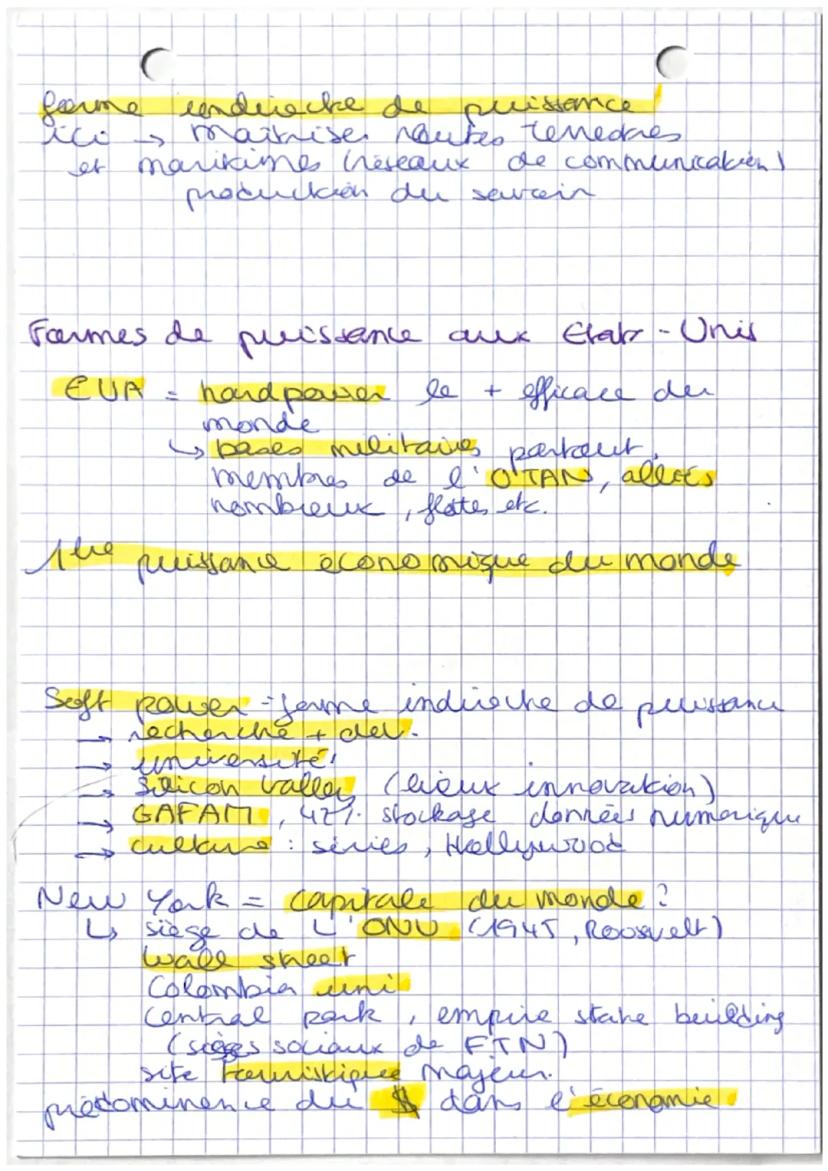 forme indirecte de puissance
ici → maîtriser routes terrestres
et maritimes (réseaux de communication)
production du savoir
Formes de puissance aux Etats-Unis
EUA = hard power le + efficace du
monde
↳ bases militaires partout,
membres de l'OTAN, alliés
nombreux, flotes etc.
1ère puissance économique du monde
Soft power = forme indirecte de puissance
→ recherche + dev.
→ université,
→ Silicon Valley (lieux innovation)
→ GAFAM, 42% stockage données numérique
→ culture : séries, Hollywood
New York = capitale du monde ?
↳ siège de L'ONU (1945, Roosvelt)
Wall street
Colombia uni
central park, empire state building
(sièges sociaux de FTN)
site touristique majeur.
prédominence du $ dans l'économie